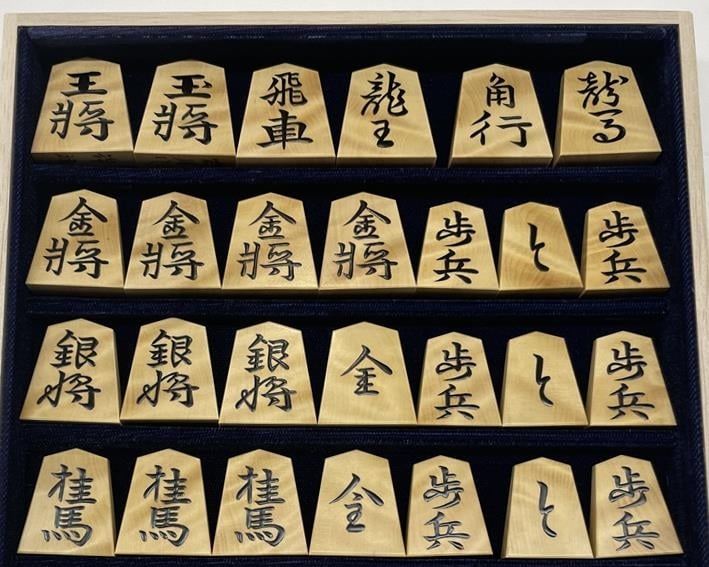 王將 玉將 飛車 龍王 角行 龍馬
金將 金將 金將 金將 歩兵 と 歩兵
銀将 銀将 銀将 全 歩兵 と 歩兵
桂馬 桂馬 桂馬 全 歩兵 と 歩兵